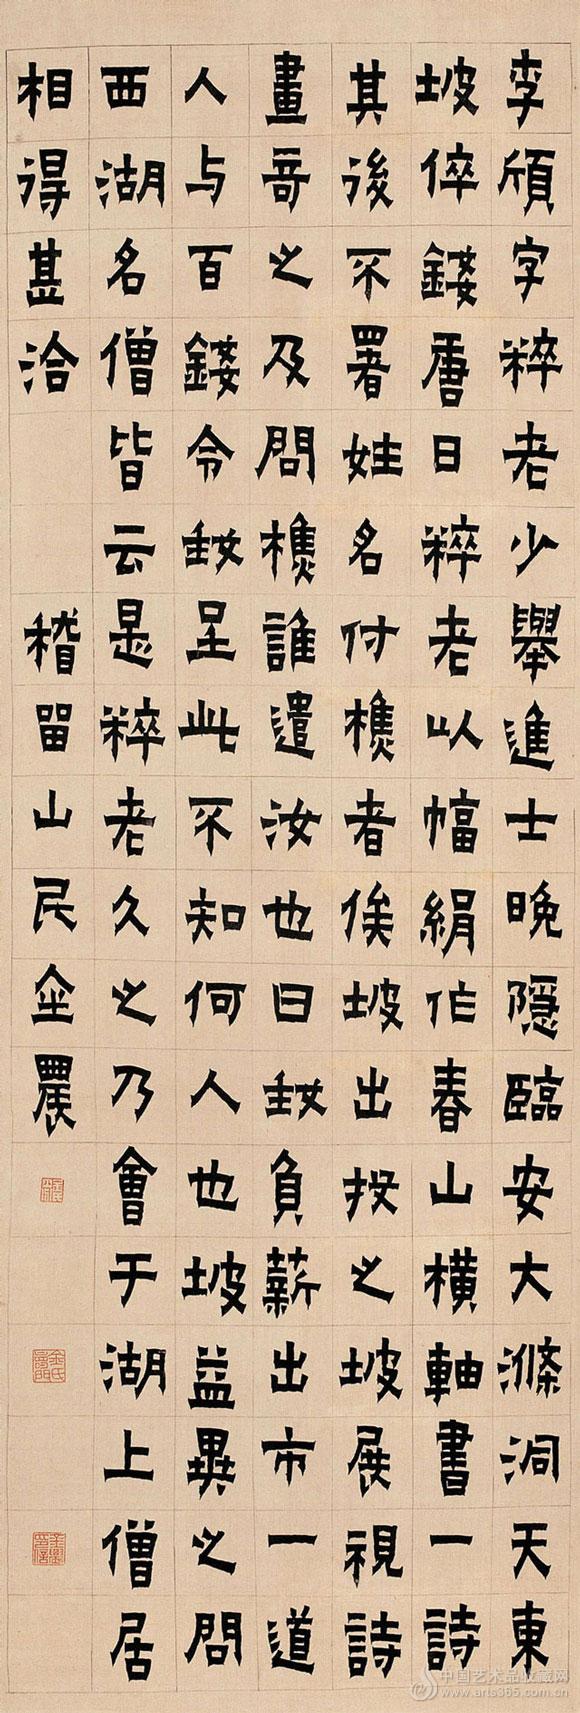 李頎字粹老少舉進士晚隱臨安大滌洞天東
坡倅錢唐日粹老以幅絹作春山橫軸書一詩
其後不署姓名付樵者俟坡出投之坡展視詩
畫奇之及問樵誰遣汝也曰我負薪出市一道
人与百錢令我呈此不知何人也坡益異之問
西湖名僧皆云是粹老久之乃會于湖上僧居
相得甚洽 稽留山民金農
金氏壽門
中国艺术品收藏网
www.arts365.com.cn